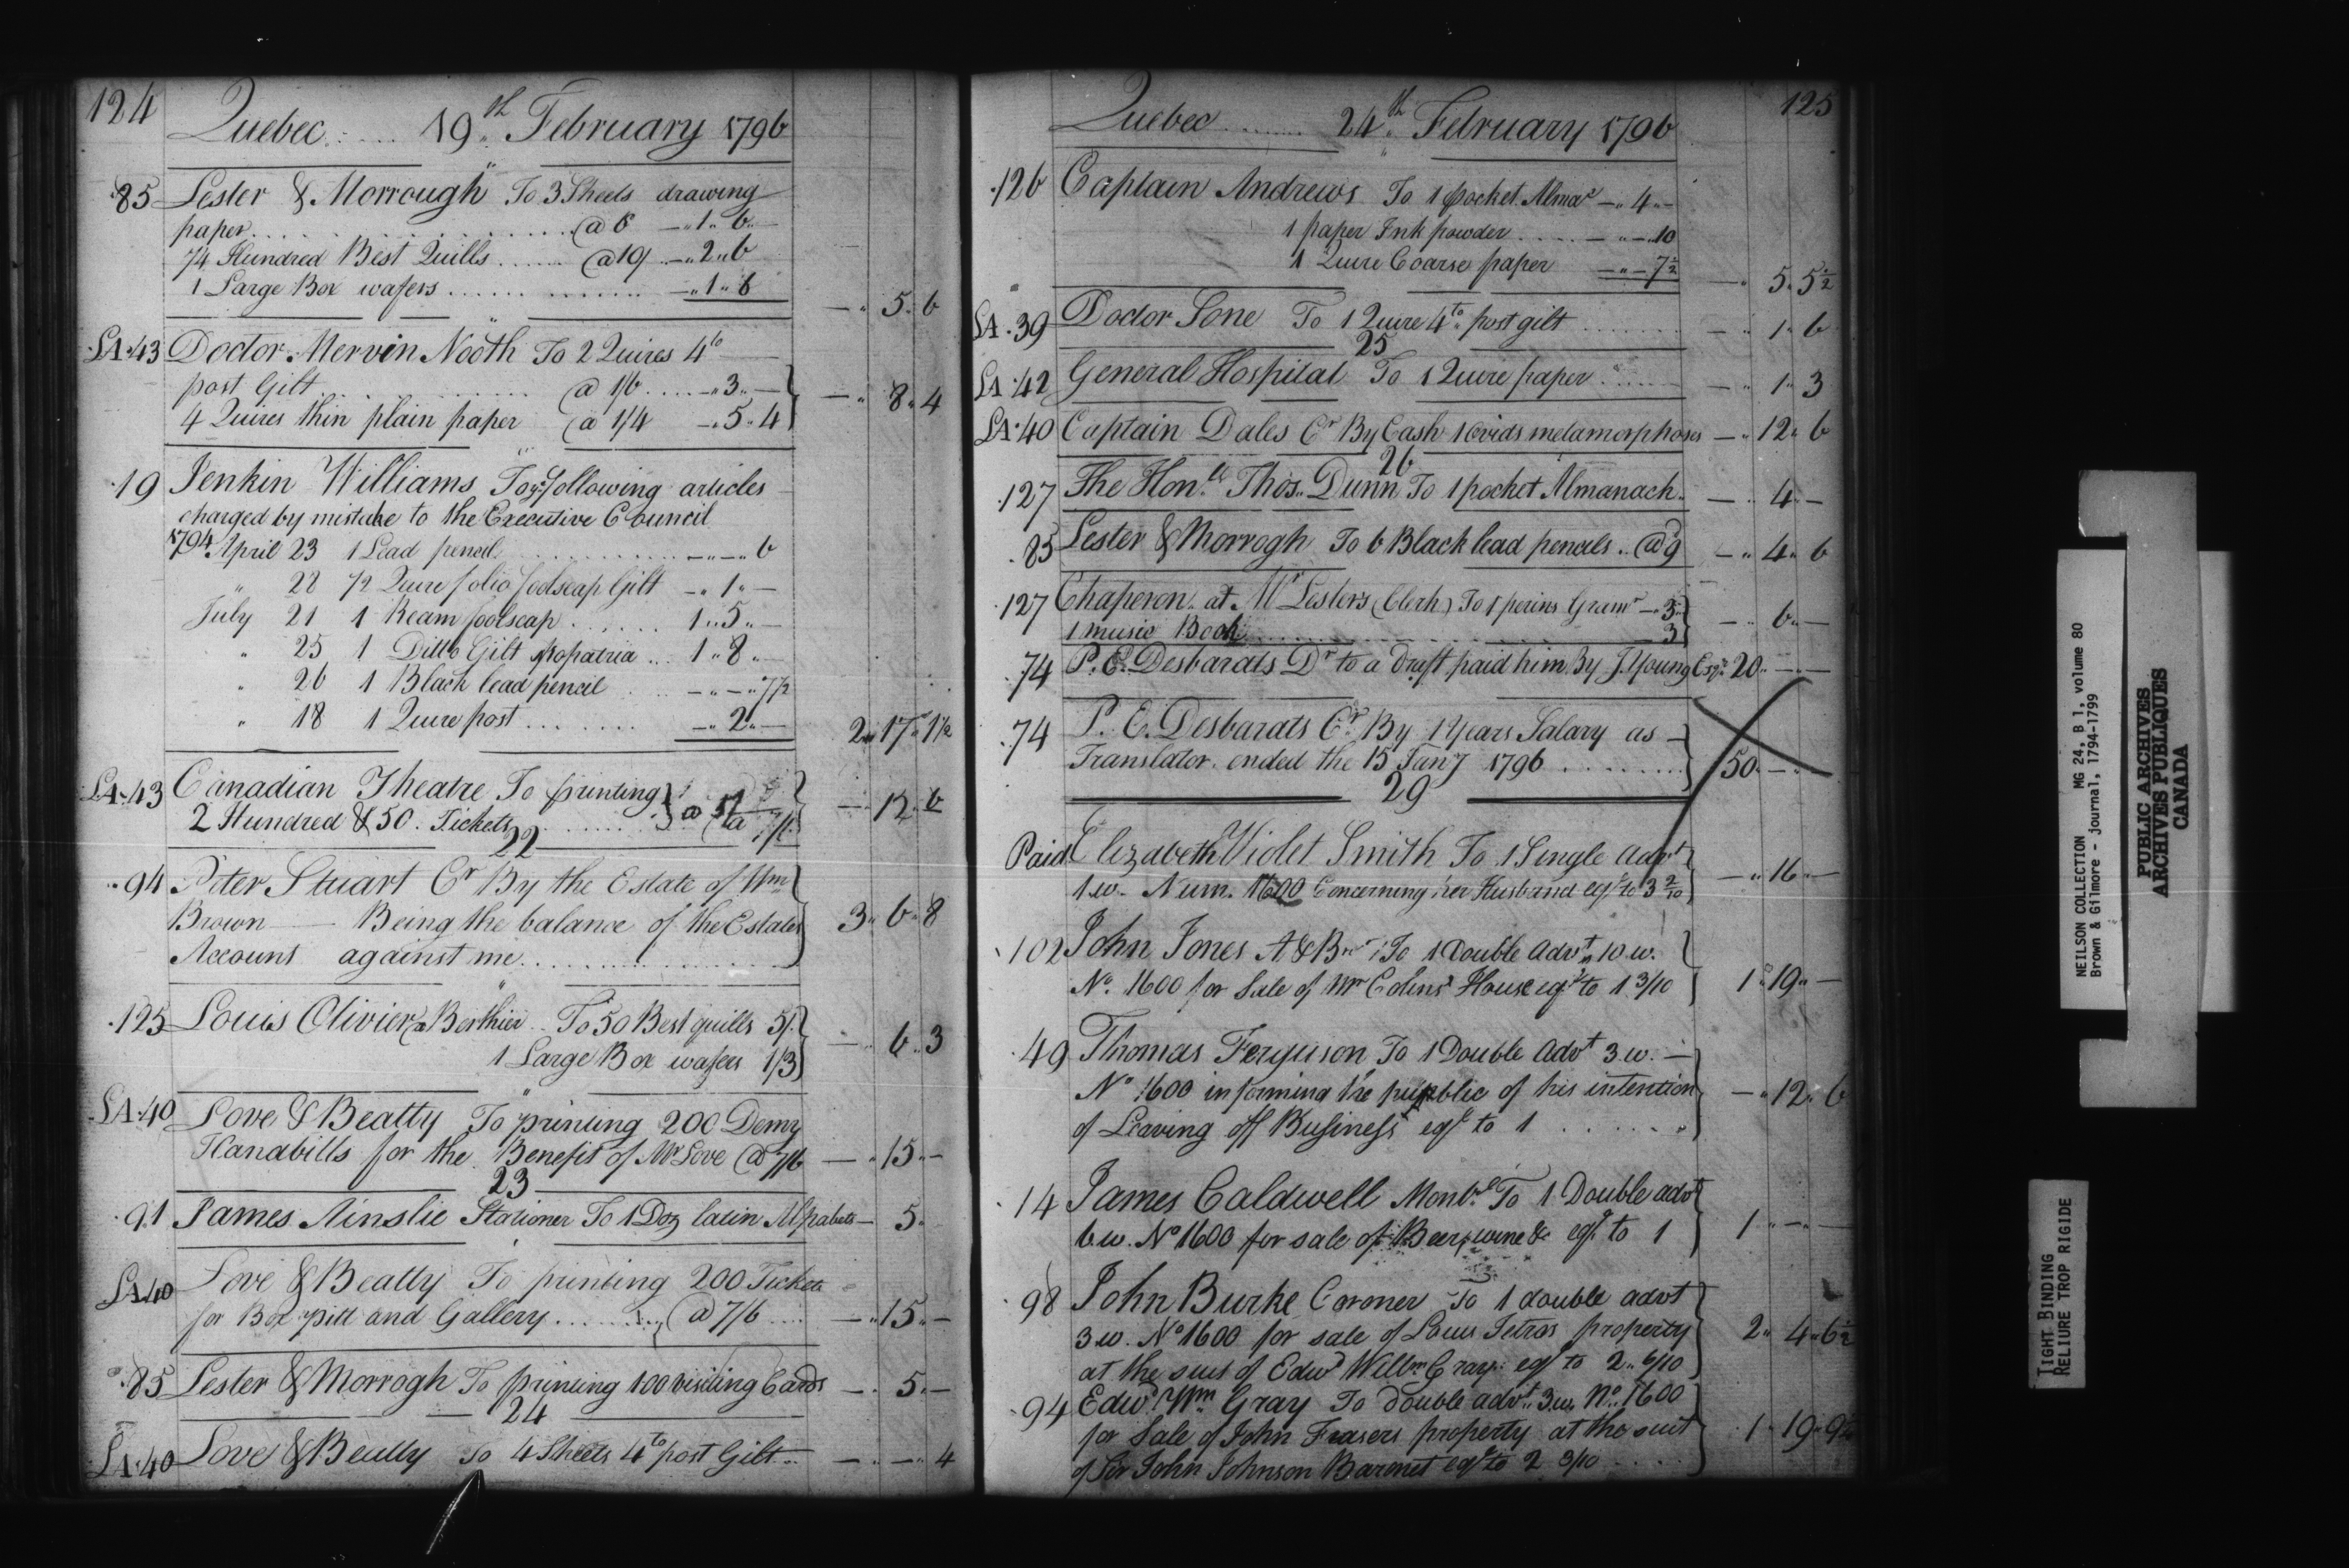 124
Quebec ..... 19th February 1796
85 Lester & Morrough To 3 Sheets drawing
paper ........ @ 6 — " 1 " 6 "
1/4 Hundred Best Quills ....... @ 19 .. — " 2 " 6
1 Large Box wafers ............ — " 1 " 6
— " 5 " 6
LA.43 Doctor Mervin Nooth To 2 Quires 4to
post Gilt ........ @ 1/6 .... — " 3 " —
4 Quires thin plain paper @ 1/4 — " 5 " 4
— " 8 " 4
19 Jenkin Williams To ye following articles
charged by mistake to the Executive Council
1794 April 23 1 Lead pencil ........ — " — " 6
" 28 1/2 Quire folio foolscap Gilt — " 1 " —
July 21 1 Ream foolscap ....... 1 " 5 " —
" 25 1 Ditto Gilt propatria ... 1 " 8 " —
" 26 1 Black lead pencil .... — " — " 7 1/2
" 18 1 Quire post ....... — " 2 " —
2 " 17 " 1 1/2
LA.43 Canadian Theatre To printing
2 Hundred & 50 . Tickets ....... @ 5/
— " 12 " 6
22
94 Peter Stuart Cr By the Estate of Wm
Brown — Being the balance of the Estates
Account against me ............
3 " 6 " 8
125 Louis Olivier Berthier .. To 50 Best quills 5/
1 Large Box wafers 1/3
— " 6 " 3
LA.40 Love & Beatty To printing 200 Demy
Handbills for the Benefit of Mr Love @ 7/6 — " 15 " —
23
91 James Ainslie Stationer To 1 Doz latin Alpabets — " 5 "
LA.40 Love & Beatty To printing 200 Tickets
for Box pitt and Gallery ........ @ 7/6 .... — " 15 " —
85 Lester & Morrogh To printing 100 visiting Cards — " 5 " —
24
LA.40 Love & Beatty To 4 Sheets 4to post Gilt .. — " — " 4
125
Quebec ....... 24th February 1796
126 Captain Andrews To 1 pocket Almac — " 4 " —
1 paper Ink powder ..... — " — " 10
1 Quire Coarse paper — " — 7 1/2
— " 5 " 5 1/2
LA.39 Doctor Lone To 1 Quire 4to post gilt ........ — " 1 " 6
25
LA.42 General Hospital To 1 Quire paper ....... — " 1 " 3
LA.40 Captain Dales Cr By Cash 1 Ovids metamorphoses — " 12 " 6
26
127 The Honble Thos. Dunn To 1 pocket Almanack — " 4 " —
85 Lester & Morrogh To 6 Black lead pencils .. @ 9 — " 4 " 6
127 Chaperon at Mr Lesters (Clerk) To 1 perins Gramr — " 3 "
1 music Book .......... 3
— " 6 " —
74 P. E. Desbarats Dr to a Draft paid him By J. Young Esqr 20 " — " —
74 P. E. Desbarats Cr By 1 Years Salary as —
Translator ended the 15 Jany 1796 .........
50 " — " —
29
Paid Elizabeth Violet Smith To 1 Single advt
1 w. Num. 1600 Concerning her Husband eql to 3 2/10
— " 16 " —
102 John Jones A & Br To 1 Double Advt 10 w.
No. 1600 for Sale of Mr House eql to 1 3/10
1 " 19 " —
49 Thomas Ferguson To 1 Double Advt 3 w. —
No 1600 informing the public of his intention
of Leaving off Business eql to 1 .......
— " 12 " 6
14 James Caldwell Montl To 1 Double advt
6 w. No 1600 for sale of Beer, wine & eql to 1
1 " — " —
98 John Burke Coroner To 1 double advt
3 w. No 1600 for sale of Louis Tetros property
at the suit of Edwd Willm Gray eql to 2 " 6/10
2 " 4 " 6 1/2
94 Edwd Wm Gray To Double advt 3 w. No. 1600
for Sale of John Frasers property at the suit
of Sir John Johnson Baronet eql to 2 3/10 ....
1 " 19 "
NEILSON COLLECTION MG 24, B 1, volume 80
Brown & Gilmore - journal, 1794-1799
PUBLIC ARCHIVES
ARCHIVES PUBLIQUES
CANADA
TIGHT BINDING
RELIURE TROP RIGIDE